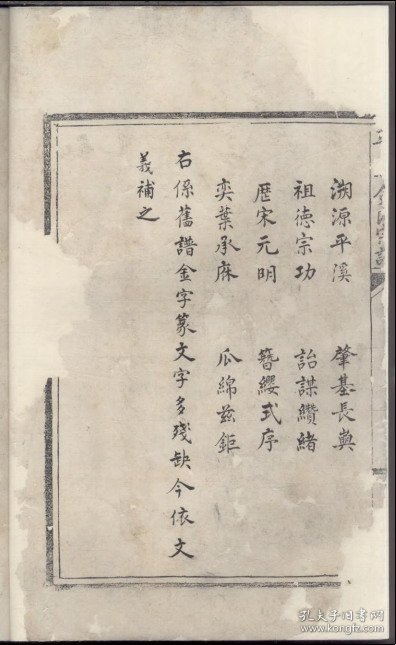 溯源平溪 肇基長興
祖德宗功 詒謀纘緒
歷宋元明 簪纓式序
奕葉承庥 瓜綿兹鉅
右係舊譜金字篆文字多殘缺今依文
義補之
孔夫子旧书网
www.kongfz.com